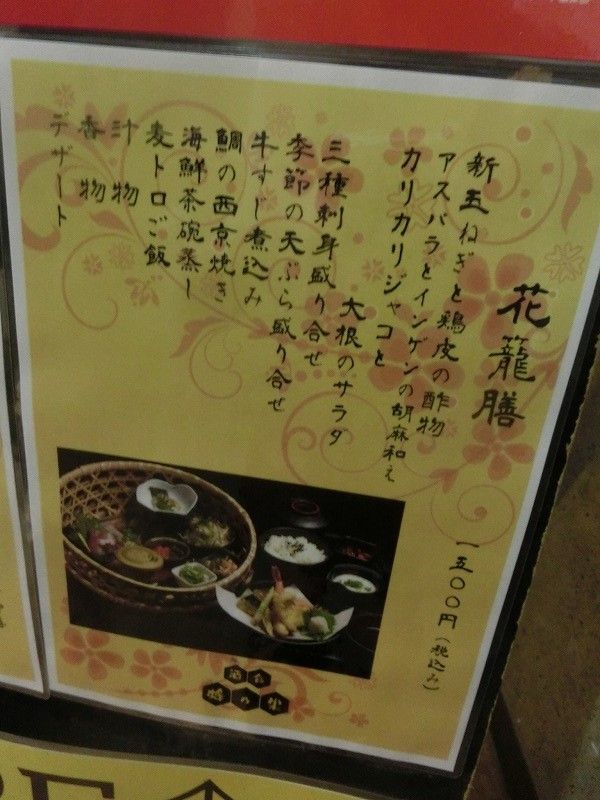 花籠膳
一五〇〇円（税込み）
新玉ねぎと鶏皮の酢物
アスパラとインゲンの胡麻和え
カリカリジャコと
大根のサラダ
三種刺身盛り合せ
季節の天ぷら盛り合せ
牛すじ煮込み
鯛の西京焼き
海鮮茶碗蒸し
麦トロご飯
汁物
香物
デザート